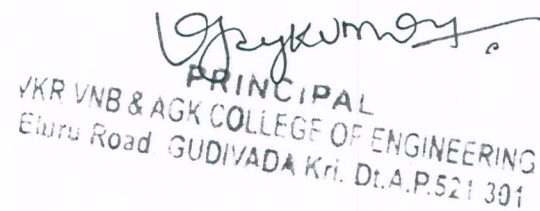 PRINCIPAL
VKR VNB & AGK COLLEGE OF ENGINEERING
Eluru Road GUDIVADA Kri. Dt.A.P.521 301